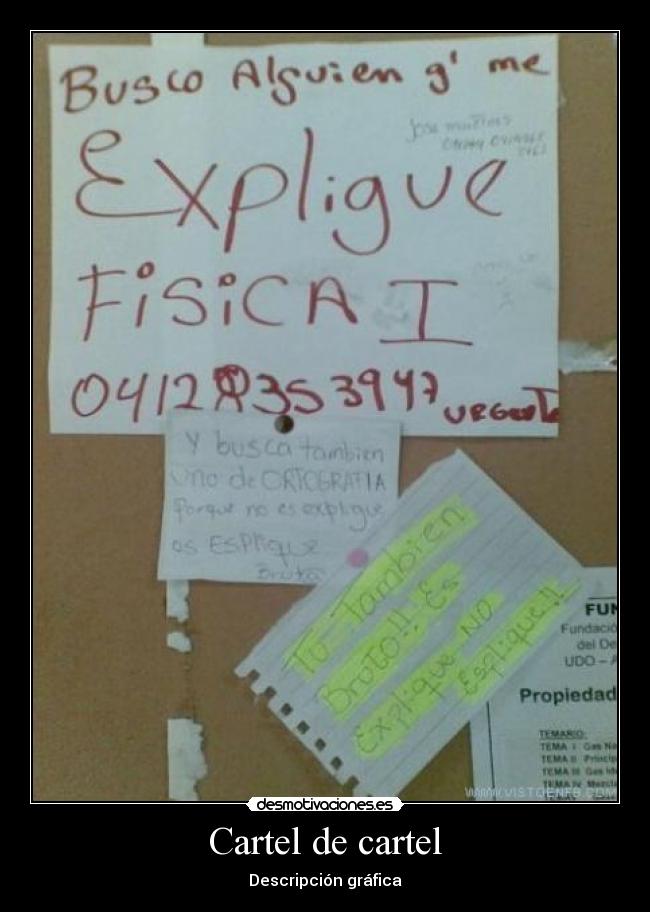 Busco Alguien q' me
Explique
FisicA I
0412 353 3947
URGente
Y busca tambien
Uno de ORTOGRAFIA
Porque no es explique
es ESPlique
Bruto
Tu Tambien
Bruto!! Es
Explique NO
Esplique!!
FUN
Fundació
del De
UDO – A
Propiedad
TEMARIO:
TEMA I Gas Na
TEMA II Princip
TEMA III Gas Id
TEMA IV Mezcla
WWW.VISTOENFB.COM
desmotivaciones.es
Cartel de cartel
Descripción gráfica